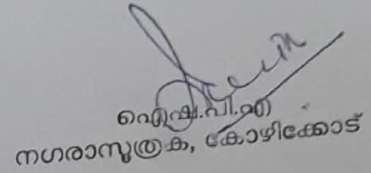 ഐഷ.വി.എ
നഗരാസൂത്രക, കോഴിക്കോട്